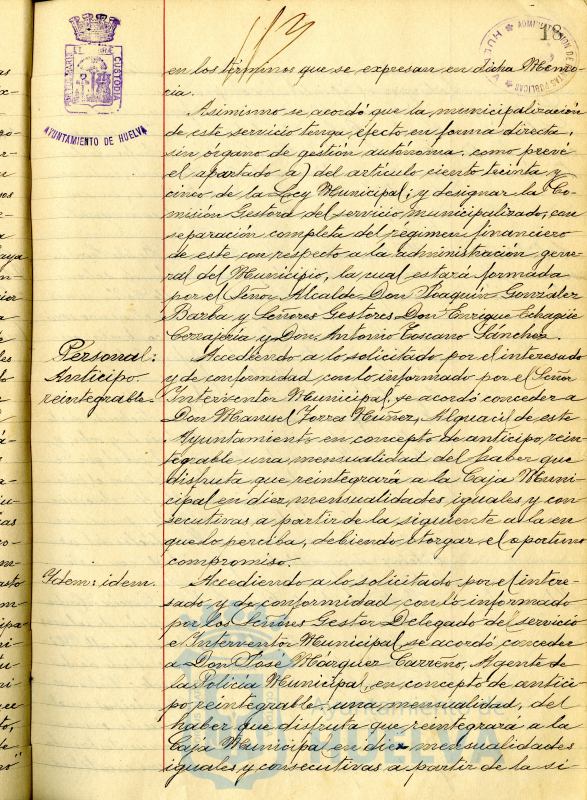 18
CUSTODIA
AYUNTAMIENTO DE HUELVA
HUELVA
en los términos que se expresan en dicha Memo-
ria.
Asimismo se acordó que la municipalización
de este servicio tenga efecto en forma directa,
sin órgano de gestión autónoma, como prevé
el apartado a) del artículo ciento treinta y
cinco de la Ley Municipal; y designar la Co-
misión Gestora del servicio municipalizado, con
separación completa del régimen financiero
de este con respecto a la administración gene-
ral del Municipio, la cual estará formada
por el Señor Alcalde Don Joaquín González
Barba y Señores Gestores Don Enrique Echagüe
Don Antonio Toscano Sánchez.
Personal:
Anticipo
reintegrable.
Accediendo a lo solicitado por el interesado
y de conformidad con lo informado por el Señor
Interventor Municipal, se acordó conceder a
Don Manuel Torres Núñez, Alguacil de este
Ayuntamiento en concepto de anticipo, rein-
tegrable una mensualidad del saber que
disfruta que reintegrará a la Caja Muni-
cipal en diez mensualidades iguales y con
secutivas a partir de la siguiente a la en
que lo perciba, debiendo otorgar el oportuno
compromiso.
Ydem: idem.
Accediendo a lo solicitado por el intere-
sado y de conformidad con lo informado
por los Señores Gestor Delegado del servicio
e Interventor Municipal, se acordó conceder
a Don José Márquez Carreño, Agente de
la Policía Municipal, en concepto de antici-
po, reintegrable, una mensualidad, del
haber que disfruta que reintegrará a la
Caja Municipal en diez mensualidades
iguales y consecutivas a partir de la si-
Ayuntamiento de
HUELVA